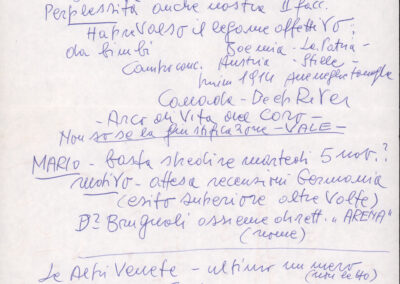 Perplessità anche nostra II facc.
Ha prevalso il legame affettivo:
da bimbi Boemia - La Patria -
Campo conc. Austria - Stelle -
primi 1914 Auc
Canada - Deep River
- Arco di Vita due Coro -
Non so se la giustificazione - VALE -
MARIO - basta spedire martedì 5 nov.?
motivo - attesa recensioni Germania
(esito superiore altre volte)
D? Brugnoli assieme dirett. "ARENA"
(nome)
Le Alpi Venete - ultimo numero
(non letto)